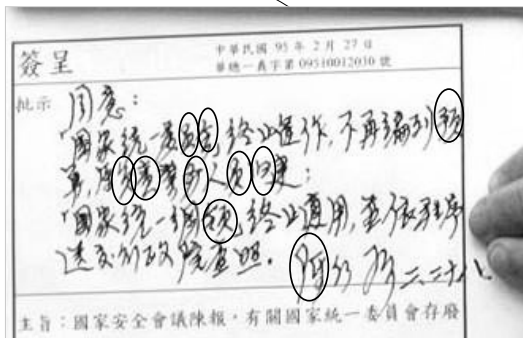 簽呈
中華民國 95 年 2 月 27 日
華總一義字第 09510012030 號
批示
同意:
「國家統一委员会」終止運作,不再編列预
算,原负责業务人员归建;
「國家統一綱领」終止適用,並依程序
送交行政院查照。 陈水扁 二、二十八
主旨:國家安全會議陳報,有關國家統一委員會存廢